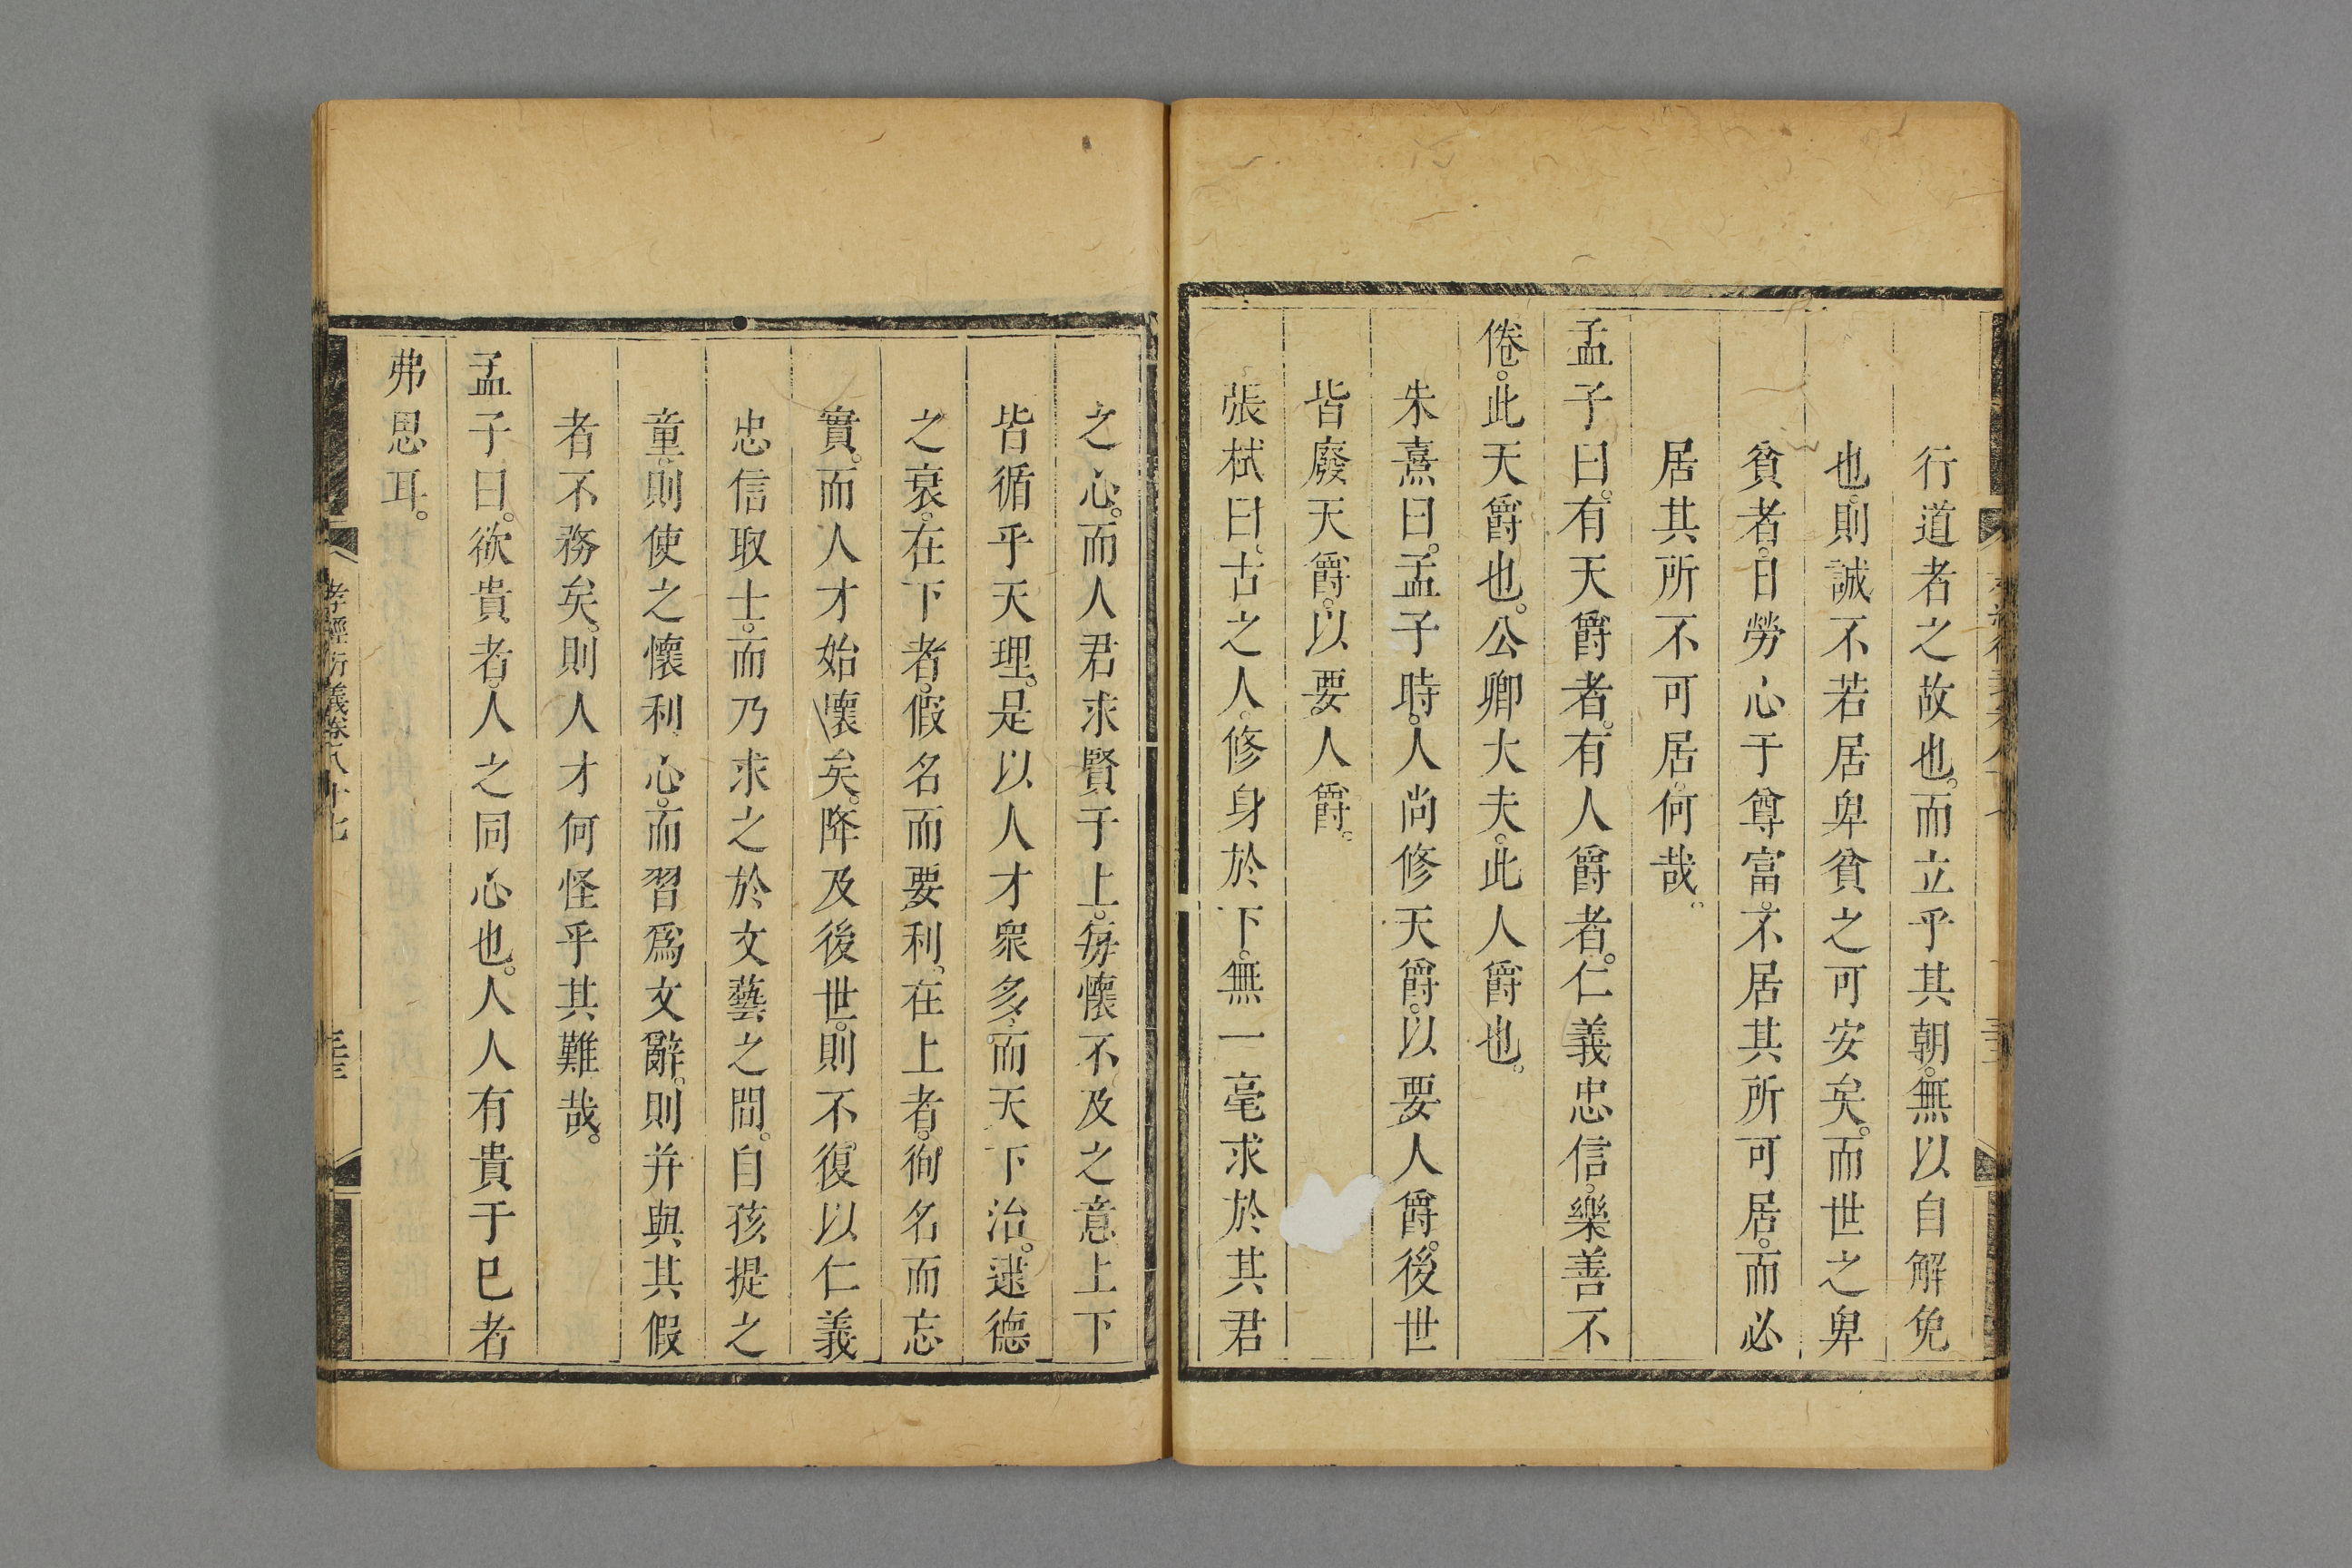 行道者之故也。而立乎其朝。無以自解免
也。則誠不若居卑貧之可安矣。而世之卑
貧者。日勞心于尊富。不居其所可居。而必
居其所不可居。何哉。
孟子曰。有天爵者。有人爵者。仁義忠信。樂善不
倦。此天爵也。公卿大夫。此人爵也。
朱熹曰。孟子時。人尚修天爵。以要人爵。後世
皆廢天爵。以要人爵。
張栻曰。古之人。修身於下。無一毫求於其君
之心。而人君求賢于上。每懷不及之意。上下
皆循乎天理。是以人才衆多。而天下治。逮德
之衰。在下者。假名而要利。在上者。徇名而忘
實。而人才始壞矣。降及後世。則不復以仁義
忠信取士。而乃求之於文藝之間。自孩提之
童。則使之懷利心。而習爲文辭。則并與其假
者不務矣。則人才何怪乎其難哉。
孟子曰。欲貴者。人之同心也。人人有貴于已者
弗思耳。
孝經衍義卷八十七